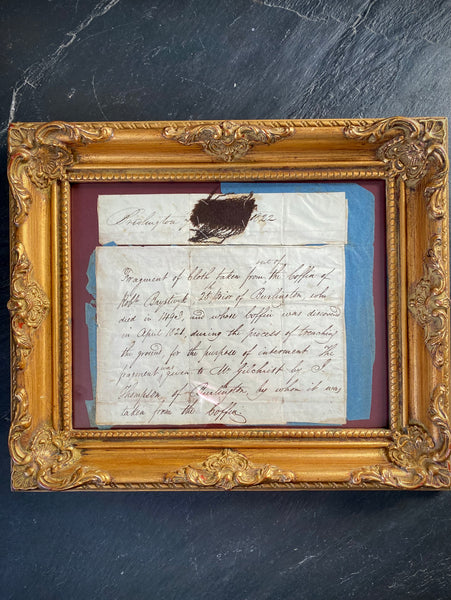 Bridlington 1822
out of
Fragment of Cloth taken from the Coffin of
Robt Baystick, 25 Prior of Burlington who
died in 1493, and whose Coffin was discovd
in April 1821, during the process of trenching
the ground, for the purpose of interment The
fragment was given to Mr Gilchrist by J
Thompson, of Burlington, by whom it was
taken from the Coffin